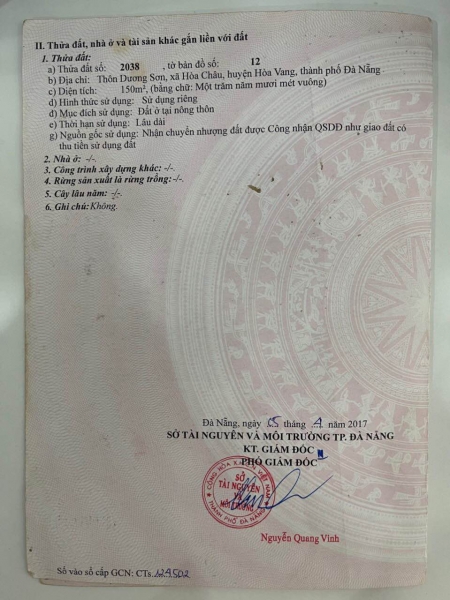 II. Thửa đất, nhà ở và tài sản khác gắn liền với đất
1. Thửa đất:
a) Thửa đất số: 2038 , tờ bản đồ số: 12
b) Địa chỉ: Thôn Dương Sơn, xã Hòa Châu, huyện Hòa Vang, thành phố Đà Nẵng
c) Diện tích: 150m², (bằng chữ: Một trăm năm mươi mét vuông)
d) Hình thức sử dụng: Sử dụng riêng
đ) Mục đích sử dụng: Đất ở tại nông thôn
e) Thời hạn sử dụng: Lâu dài
g) Nguồn gốc sử dụng: Nhận chuyển nhượng đất được Công nhận QSDĐ như giao đất có
thu tiền sử dụng đất
2. Nhà ở: -/-.
3. Công trình xây dựng khác: -/-.
4. Rừng sản xuất là rừng trồng: -/-.
5. Cây lâu năm: -/-.
6. Ghi chú: Không.
Đà Nẵng, ngày 15 tháng 4 năm 2017
SỞ TÀI NGUYÊN VÀ MÔI TRƯỜNG TP. ĐÀ NẴNG
KT. GIÁM ĐỐC
PHÓ GIÁM ĐỐC
CỘNG HÒA X.H.C.N VIỆT NAM
SỞ
TÀI NGUYÊN
MÔI TRƯỜNG
THÀNH PHỐ ĐÀ NẴNG
Nguyễn Quang Vinh
Số vào sổ cấp GCN: CTs.124502